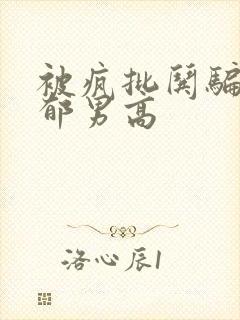 被疯批阔骗
郁男高
洛心辰1